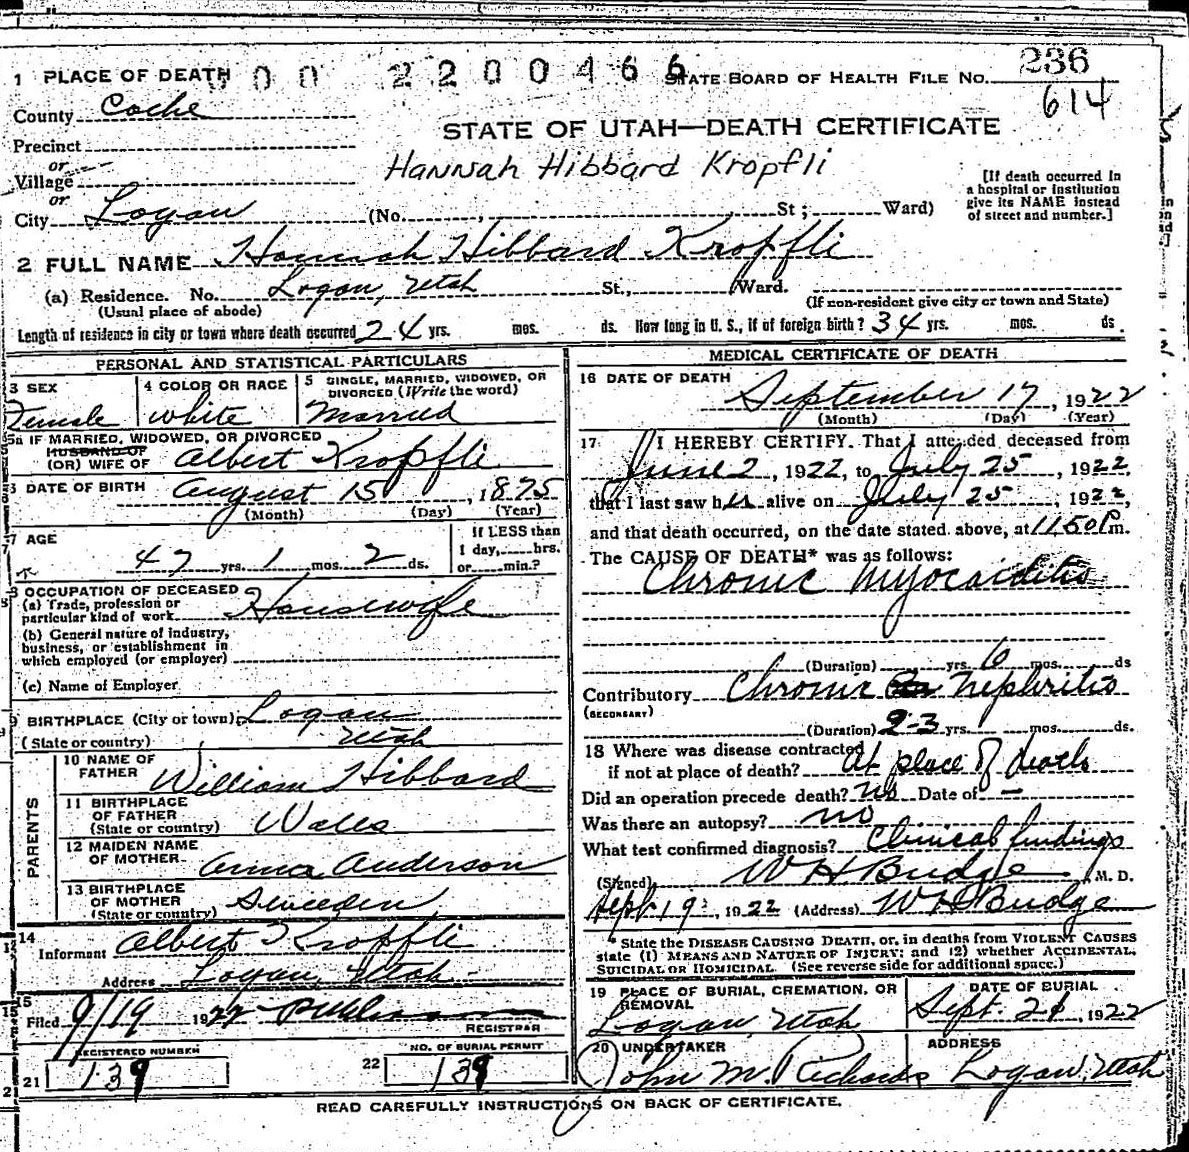 1 PLACE OF DEATH 00 2200466 STATE BOARD OF HEALTH FILE NO. 236
614
County Cache
STATE OF UTAH—DEATH CERTIFICATE
Precinct
or
Hannah Hibbard Kropfli
Village
or
[If death occurred in a hospital or institution give its NAME instead of street and number.]
City Logan (No. , St ; Ward)
2 FULL NAME Hannah Hibbard Kropfli
(a) Residence. No. Logan, Utah St., Ward.
(Usual place of abode) (If non-resident give city or town and State)
Length of residence in city or town where death occurred 24 yrs. mos. ds. How long in U. S., if of foreign birth? 34 yrs. mos. ds.
PERSONAL AND STATISTICAL PARTICULARS
3 SEX
Female
4 COLOR OR RACE
White
5 SINGLE, MARRIED, WIDOWED, OR
DIVORCED (Write the word)
Married
5a IF MARRIED, WIDOWED, OR DIVORCED
HUSBAND OF
(OR) WIFE OF Albert Kropfli
6 DATE OF BIRTH August 15 , 1875
(Month) (Day) (Year)
7 AGE
47 yrs. 1 mos. 2 ds.
If LESS than
1 day, hrs.
or min.?
8 OCCUPATION OF DECEASED
(a) Trade, profession or
particular kind of work Housewife
(b) General nature of industry,
business, or establishment in
which employed (or employer)
(c) Name of Employer
9 BIRTHPLACE (City or town) Logan
(State or country) Utah
PARENTS
10 NAME OF
FATHER William Hibbard
11 BIRTHPLACE
OF FATHER
(State or country) Wales
12 MAIDEN NAME
OF MOTHER Anna Anderson
13 BIRTHPLACE
OF MOTHER
(State or country) Sweeden
14
Informant Albert Kropfli
Address Logan, Utah
15
Filed 9/19 1922
REGISTRAR
REGISTERED NUMBER
21 139
NO. OF BURIAL PERMIT
22 139
MEDICAL CERTIFICATE OF DEATH
16 DATE OF DEATH
September 17 , 1922
(Month) (Day) (Year)
17 I HEREBY CERTIFY. That I attended deceased from
June 2 , 1922, to July 25 , 1922,
that I last saw her alive on July 25 , 1922,
and that death occurred, on the date stated above, at 11.50 P.m.
The CAUSE OF DEATH* was as follows:
Chronic Myocarditis
(Duration) yrs. 6 mos. ds
Contributory Chronic Nephritis
(SECONDARY)
(Duration) 2-3 yrs. mos. ds.
18 Where was disease contracted
if not at place of death? At place of death
Did an operation precede death? no Date of —
Was there an autopsy? no
What test confirmed diagnosis? Clinical findings
(Signed) W H Budge , M. D.
Sept 19 , 1922 (Address) W H Budge
* State the DISEASE CAUSING DEATH, or, in deaths from VIOLENT CAUSES
state (1) MEANS AND NATURE OF INJURY; and (2) whether ACCIDENTAL,
SUICIDAL OR HOMICIDAL. (See reverse side for additional space.)
19 PLACE OF BURIAL, CREMATION, OR
REMOVAL
Logan, Utah
DATE OF BURIAL
Sept. 21 , 1922
20 UNDERTAKER
John M. Richards
ADDRESS
Logan, Utah
READ CAREFULLY INSTRUCTIONS ON BACK OF CERTIFICATE.